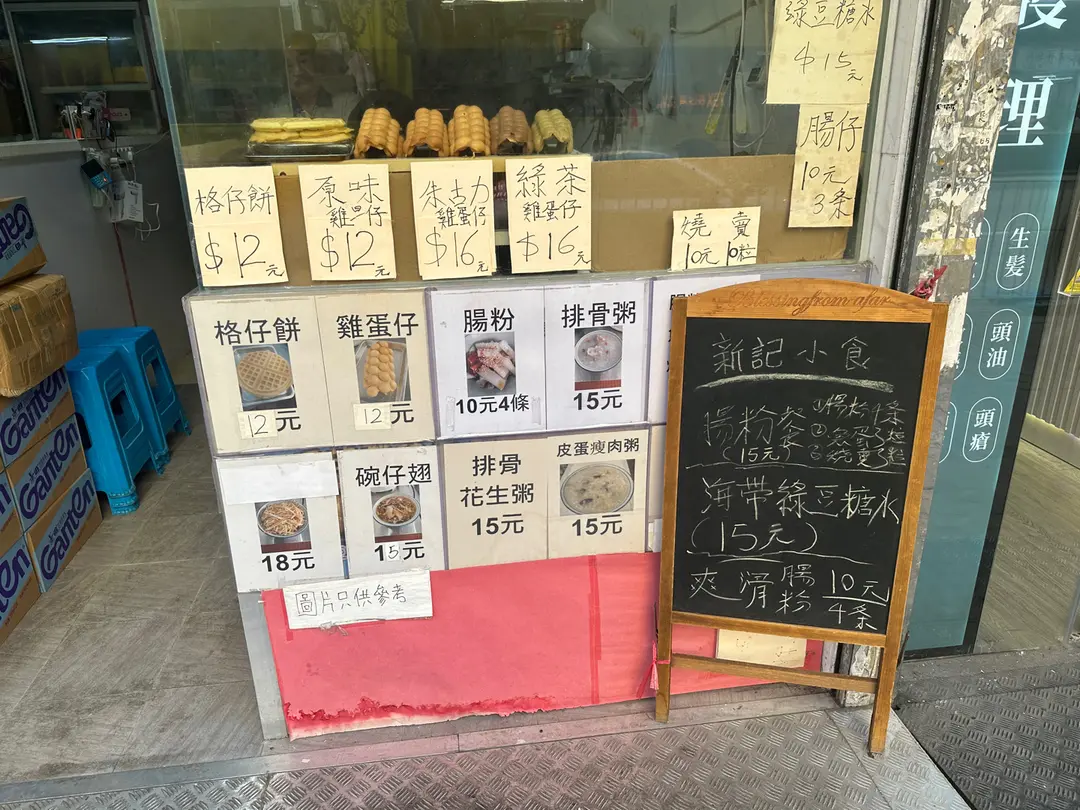 綠豆糖水
$15元
腸仔
10元
3条
格仔餅
$12元
原味
雞旦仔
$12元
朱古力
雞蛋仔
$16元
綠茶
雞蛋仔
$16元
燒賣
10元 10粒
格仔餅
12元
雞蛋仔
12元
腸粉
10元4條
排骨粥
15元
18元
碗仔翅
15元
排骨
花生粥
15元
皮蛋瘦肉粥
15元
圖片只供參考
Blessingfromafar
新記小食
腸粉餐
(15元)
①腸粉4条
②魚蛋7粒
③燒賣7粒
海带綠豆糖水
(15元)
爽滑腸粉
10元
4条
Garden
Garden
Garden
Garden
理
生髮
頭油
頭瘡